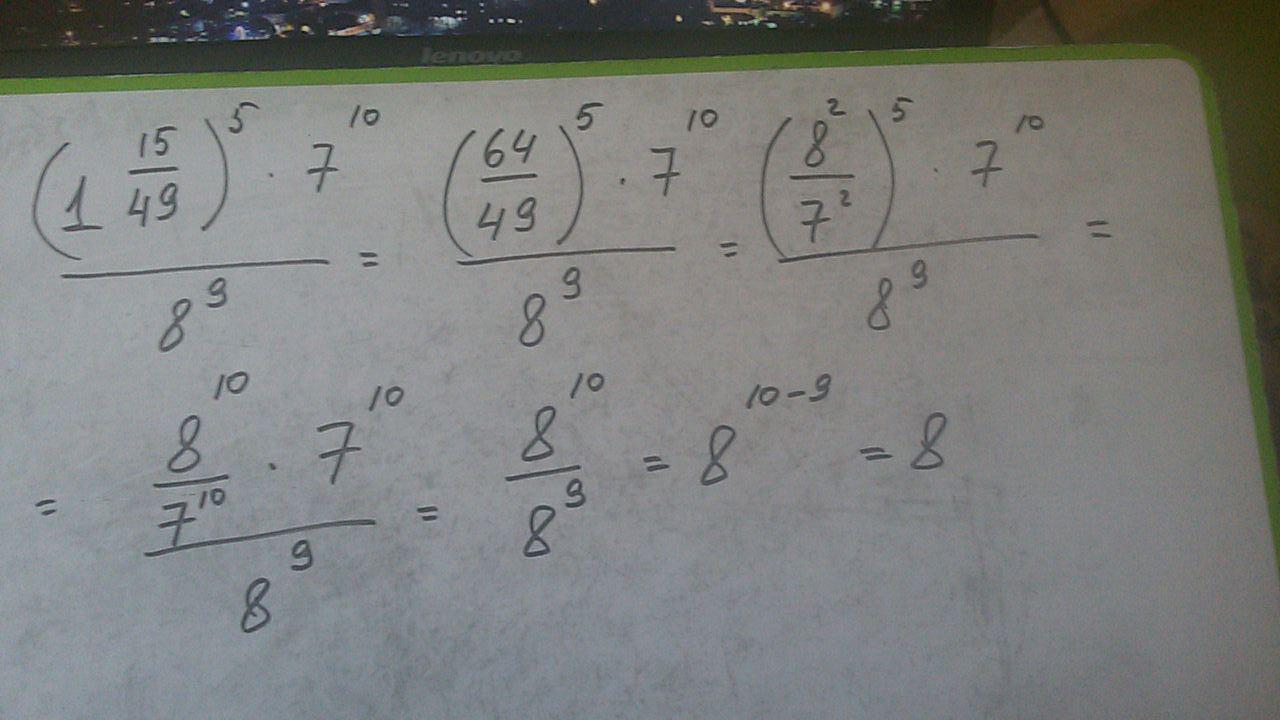 lenovo
(1 15/49)^5 · 7^10 / 8^9 = (64/49)^5 · 7^10 / 8^9 = (8^2/7^2)^5 · 7^10 / 8^9 =
= 8^10/7^10 · 7^10 / 8^9 = 8^10/8^9 = 8^10-9 = 8